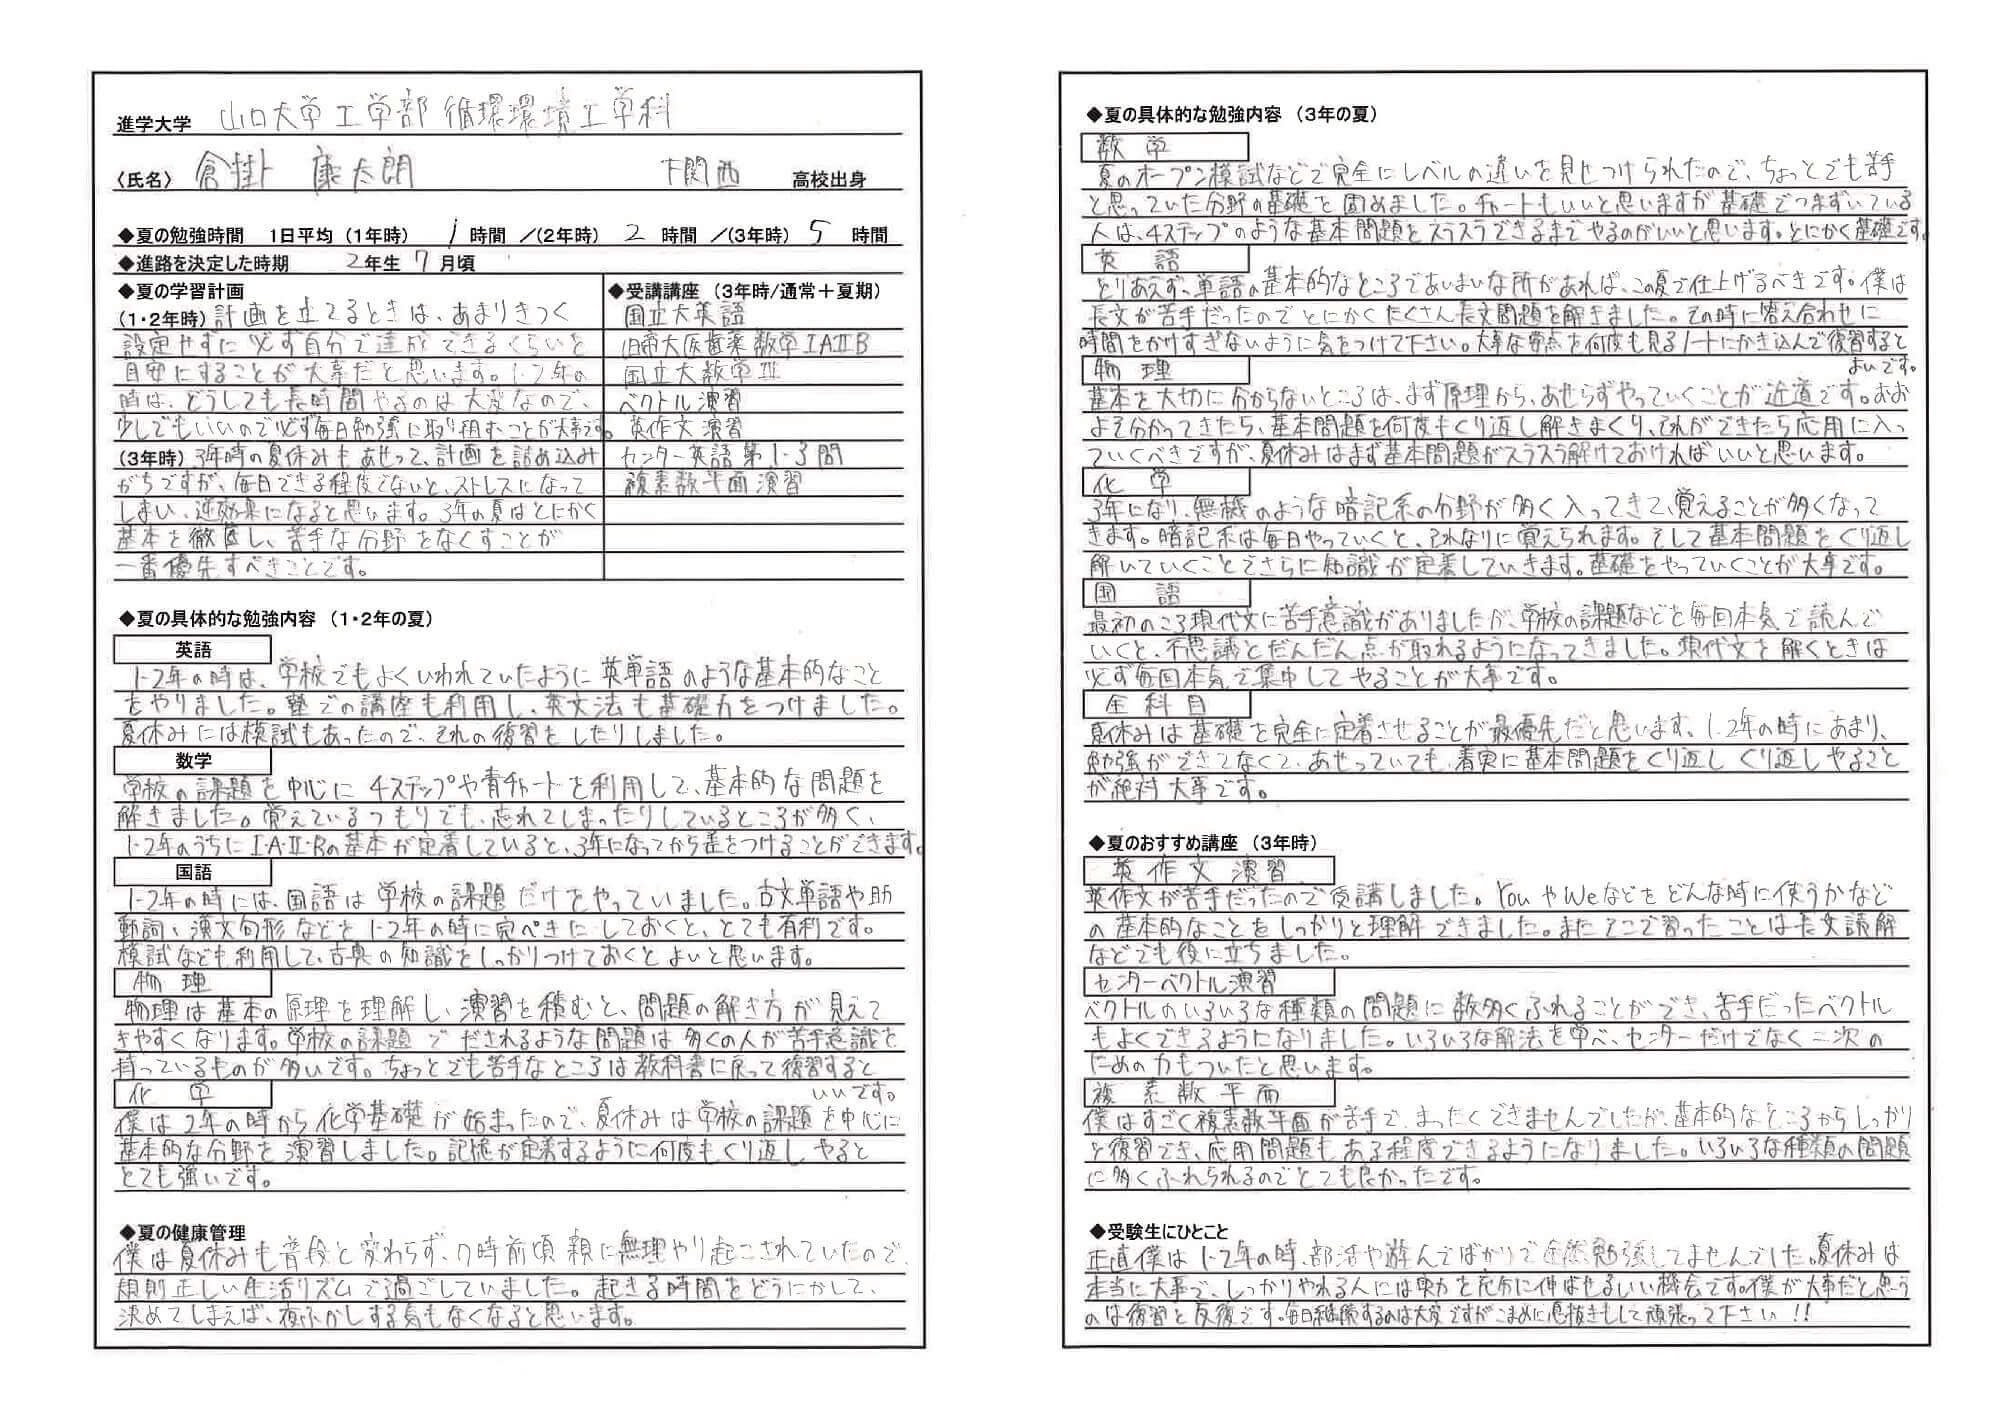 進学大学 山口大学工学部循環環境工学科
〈氏名〉 倉掛 康太朗 下関西 高校出身
◆夏の勉強時間 1日平均（1年時） 1 時間 ／（2年時） 2 時間 ／（3年時） 5 時間
◆進路を決定した時期 2年生 7 月頃
◆夏の学習計画
（1・2年時） 計画を立てるときは、あまりきつく
設定せずに必ず自分で達成できるくらいを
目安にすることが大事だと思います。1・2年の
時は、どうしても長時間やるのは大変なので、
少しでもいいので必ず毎日勉強に取り組むことが大事です。
（3年時） 3年時の夏休みもあせって、計画を詰め込み
がちですが、毎日できる程度でないと、ストレスになって
しまい、逆効果になると思います。3年の夏はとにかく
基本を徹底し、苦手な分野をなくすことが
一番優先すべきことです。
◆受講講座（3年時/通常＋夏期）
国立大英語
旧帝大医歯薬数学ⅠAⅡB
国立大数学Ⅲ
ベクトル演習
英作文演習
センター英語第1-3問
複素数平面演習
◆夏の具体的な勉強内容（1・2年の夏）
英語
1・2年の時は、学校でもよくいわれていたように英単語のような基本的なこと
をやりました。塾での講座も利用し、英文法も基礎力をつけました。
夏休みには模試もあったので、それの復習をしたりしました。
数学
学校の課題を中心に4ステップや青チャートを利用して、基本的な問題を
解きました。覚えているつもりでも、忘れてしまったりしているところが多く、
1・2年のうちにⅠ・A・Ⅱ・Bの基本が定着していると、3年になってから差をつけることができます。
国語
1・2年の時には、国語は学校の課題だけをやっていました。古文単語や助
動詞、漢文句形などを1・2年の時に完ぺきにしておくと、とても有利です。
模試なども利用して、古典の知識をしっかりつけておくとよいと思います。
物理
物理は基本の原理を理解し、演習を積むと、問題の解き方が見えて
きやすくなります。学校の課題でだされるような問題は多くの人が苦手意識を
持っているものが多いです。ちょっとでも苦手なところは教科書に戻って復習すると
いいです。
化学
僕は2年の時から化学基礎が始まったので、夏休みは学校の課題を中心に
基本的な分野を演習しました。記憶が定着するように何度もくり返しやると
とても強いです。
◆夏の健康管理
僕は夏休みも普段と変わらず、7時前頃親に無理やり起こされていたので、
規則正しい生活リズムで過ごしていました。起きる時間をどうにかして、
決めてしまえば、夜ふかしする気もなくなると思います。
◆夏の具体的な勉強内容（3年の夏）
数学
夏のオープン模試などで完全にレベルの違いを見せつけられたので、ちょっとでも苦手
と思っていた分野の基礎を固めました。チャートもいいと思いますが基礎でつまずいている
人は、4ステップのような基本問題をスラスラできるまでやるのがいいと思います。とにかく基礎です。
英語
とりあえず、単語の基本的なところであいまいな所があれば、この夏で仕上げるべきです。僕は
長文が苦手だったのでとにかくたくさん長文問題を解きました。その時に答え合わせに
時間をかけすぎないように気をつけて下さい。大事な要点を何度も見るノートにかき込んで復習すると
よいです。
物理
基本を大切に分からないところは、まず原理から、あせらずやっていくことが近道です。おお
よそ分かってきたら、基本問題を何度もくり返し解きまくり、それができたら応用に入っ
ていくべきですが、夏休みはまず基本問題がスラスラ解けておければいいと思います。
化学
3年になり、無機のような暗記系の分野が多く入ってきて、覚えることが多くなって
きます。暗記系は毎日やっていくと、それなりに覚えられます。そして基本問題をくり返し
解いていくことでさらに知識が定着していきます。基礎をやっていくことが大事です。
国語
最初のころ現代文に苦手意識がありましたが、学校の課題などを毎回本気で読んで
いくと、不思議とだんだん点が取れるようになってきました。現代文を解くときは
必ず毎回本気で集中してやることが大事です。
全科目
夏休みは基礎を完全に定着させることが最優先だと思います。1・2年の時にあまり、
勉強ができてなくて、あせっていても、着実に基本問題をくり返しくり返しやること
が絶対大事です。
◆夏のおすすめ講座（3年時）
英作文演習
英作文が苦手だったので受講しました。YouやWeなどをどんな時に使うかなど
の基本的なことをしっかりと理解できました。またそこで習ったことは長文読解
などでも役に立ちました。
センターベクトル演習
ベクトルのいろいろな種類の問題に数多くふれることができ、苦手だったベクトル
もよくできるようになりました。いろいろな解法を学べ、センターだけでなく二次の
ための力もついたと思います。
複素数平面
僕はすごく複素数平面が苦手で、まったくできませんでしたが、基本的なところからしっかり
と復習でき、応用問題もある程度できるようになりました。いろいろな種類の問題
に多くふれられるのでとても良かったです。
◆受験生にひとこと
正直僕は1・2年の時、部活や遊んでばかりで全然勉強してませんでした。夏休みは
本当に大事で、しっかりやれる人には実力を充分に伸ばせるいい機会です。僕が大事だと思う
のは復習と反復です。毎日継続するのは大変ですがこまめに息抜きもして頑張って下さい!!